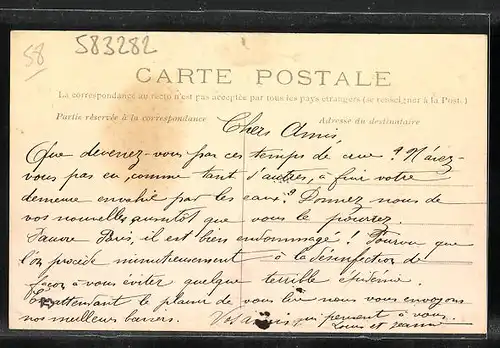 58
583282
CARTE POSTALE
La correspondance au recto n'est pas acceptée par tous les pays étrangers (se renseigner à la Post.)
Partie réservée à la correspondance
Adresse du destinataire
Chers Amis
Que devenez-vous par ces temps de crue ? N'avez-
vous pas eu, comme tant d'autres, à fuir votre
demeure envahie par les eaux ? Donnez nous de
vos nouvelles aussitôt que vous le pourrez.
Pauvre Paris, il est bien endommagé ! Pourvu que
l'on procède minutieusement à la désinfection de
façon à vous éviter quelque terrible épidémie.
En attendant le plaisir de vous lire nous vous envoyons
nos meilleurs baisers. Vos amis qui pensent à vous.
Louis et Jeanne